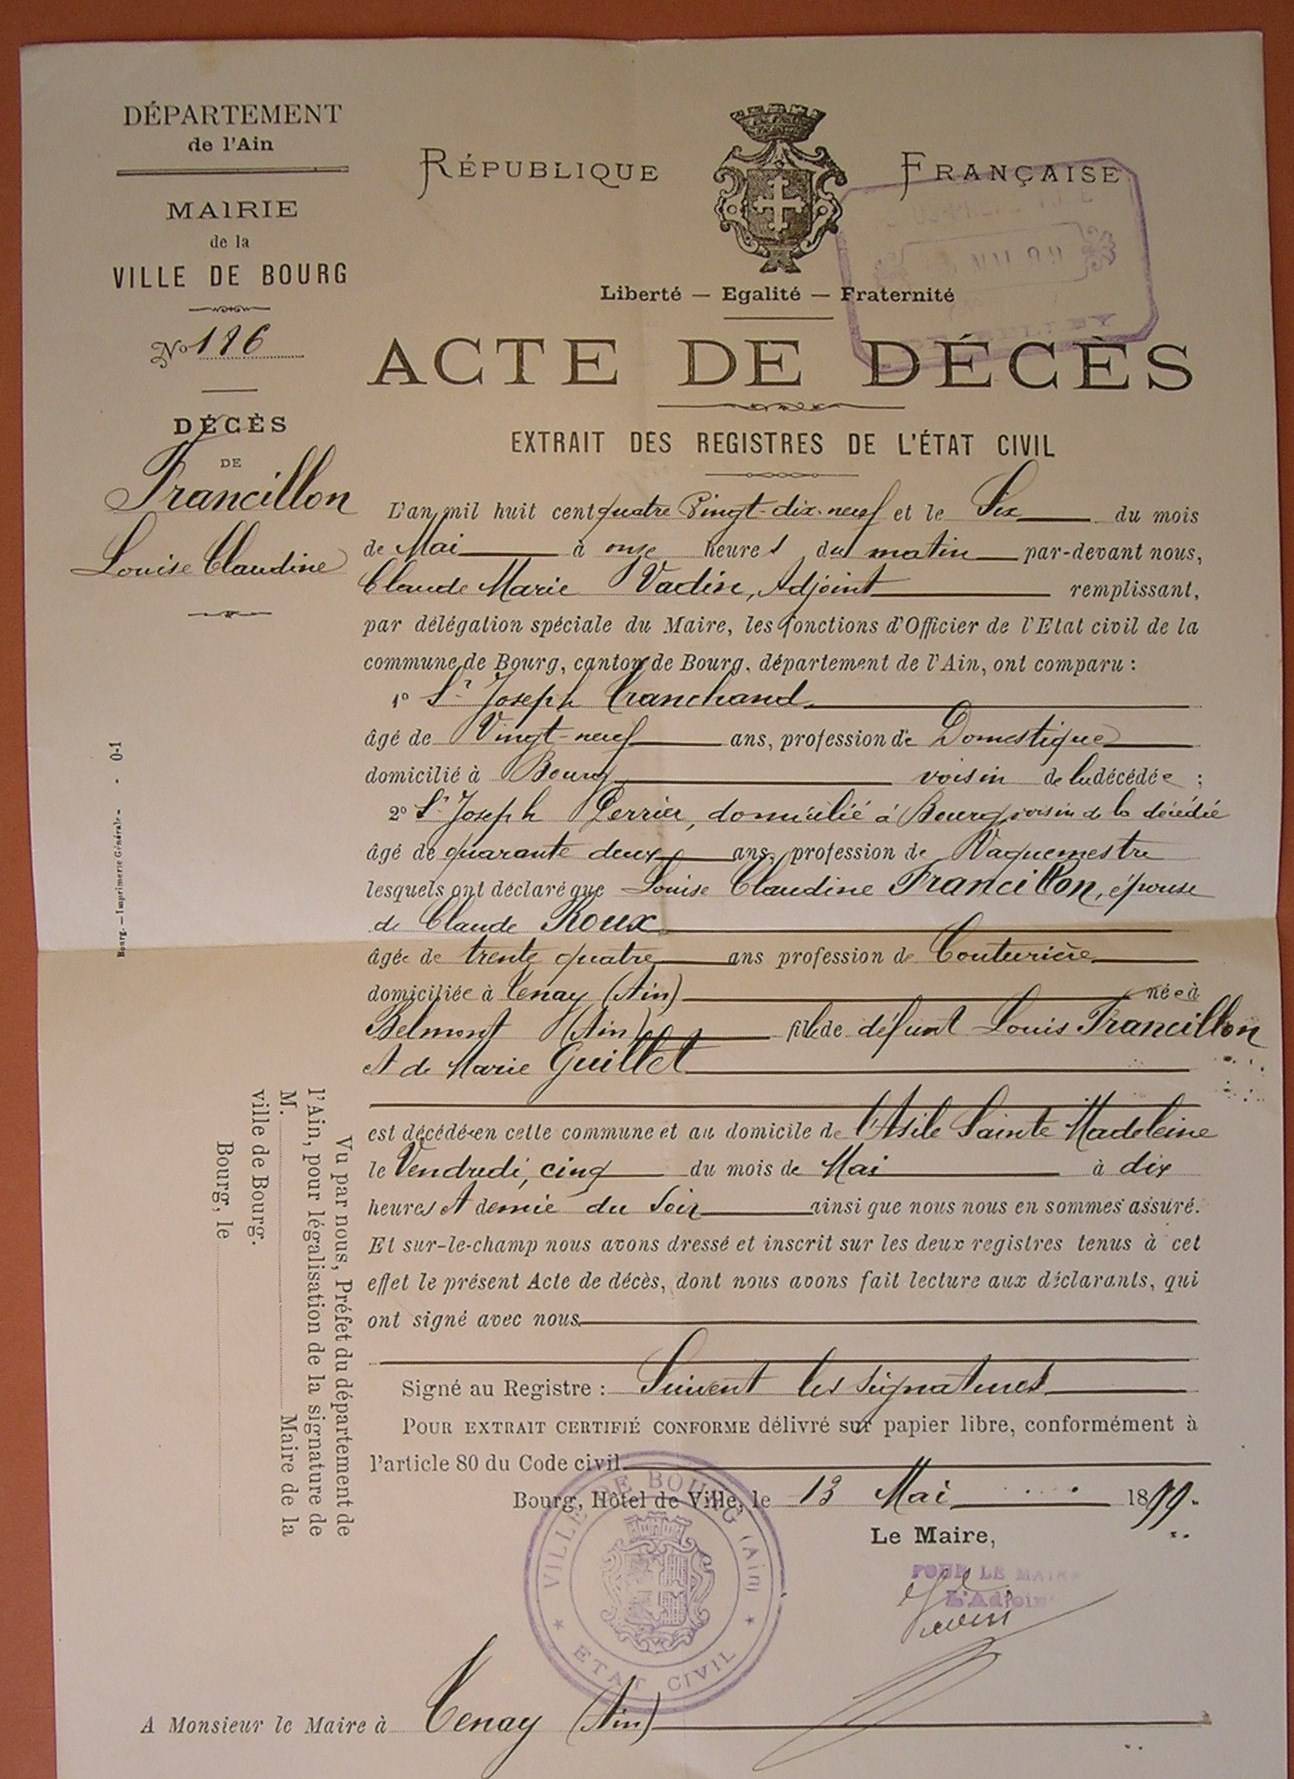 DÉPARTEMENT
de l'Ain
MAIRIE
de la
VILLE DE BOURG
No 186
DÉCÈS
DE
Francillon
Louise Claudine
RÉPUBLIQUE FRANÇAISE
Liberté — Egalité — Fraternité
ACTE DE DÉCÈS
EXTRAIT DES REGISTRES DE L'ÉTAT CIVIL
L'an mil huit cent quatre Vingt-dix-neuf et le Six du mois
de Mai à onze heures du matin par-devant nous,
Claude Marie Vadin, Adjoint remplissant,
par délégation spéciale du Maire, les fonctions d'Officier de l'Etat civil de la
commune de Bourg, canton de Bourg, département de l'Ain, ont comparu :
1o Sr Joseph Tranchand
âgé de Vingt-neuf ans, profession de Domestique
domicilié à Bourg voisin de la décédée ;
2o Sr Joseph Perrier, domicilié à Bourg, voisin de la décédée
âgé de quarante deux ans, profession de Vaguemestre
lesquels ont déclaré que Louise Claudine Francillon, épouse
de Claude Roux
âgée de trente quatre ans profession de Couturière
domiciliée à Tenay (Ain) née à
Belmont (Ain) fille de défunt Louis Francillon
et de Marie Guillet
est décédée en cette commune et au domicile de l'Asile Sainte Madeleine
le Vendredi, cinq du mois de Mai à dix
heures et demie du soir ainsi que nous nous en sommes assuré.
Et sur-le-champ nous avons dressé et inscrit sur les deux registres tenus à cet
effet le présent Acte de décès, dont nous avons fait lecture aux déclarants, qui
ont signé avec nous
Signé au Registre : Suivent les signatures
POUR EXTRAIT CERTIFIÉ CONFORME délivré sur papier libre, conformément à
l'article 80 du Code civil.
Bourg, Hôtel de Ville, le 13 Mai 1899.
Le Maire,
POUR LE MAIRE
L'Adjoint
Vadin
VILLE DE BOURG (Ain)
ETAT CIVIL
A Monsieur le Maire à Tenay (Ain)
Bourg. — Imprimerie Générale - - 0-1
Vu par nous, Préfet du département de
l'Ain, pour légalisation de la signature de
M. Maire de la
ville de Bourg.
Bourg, le